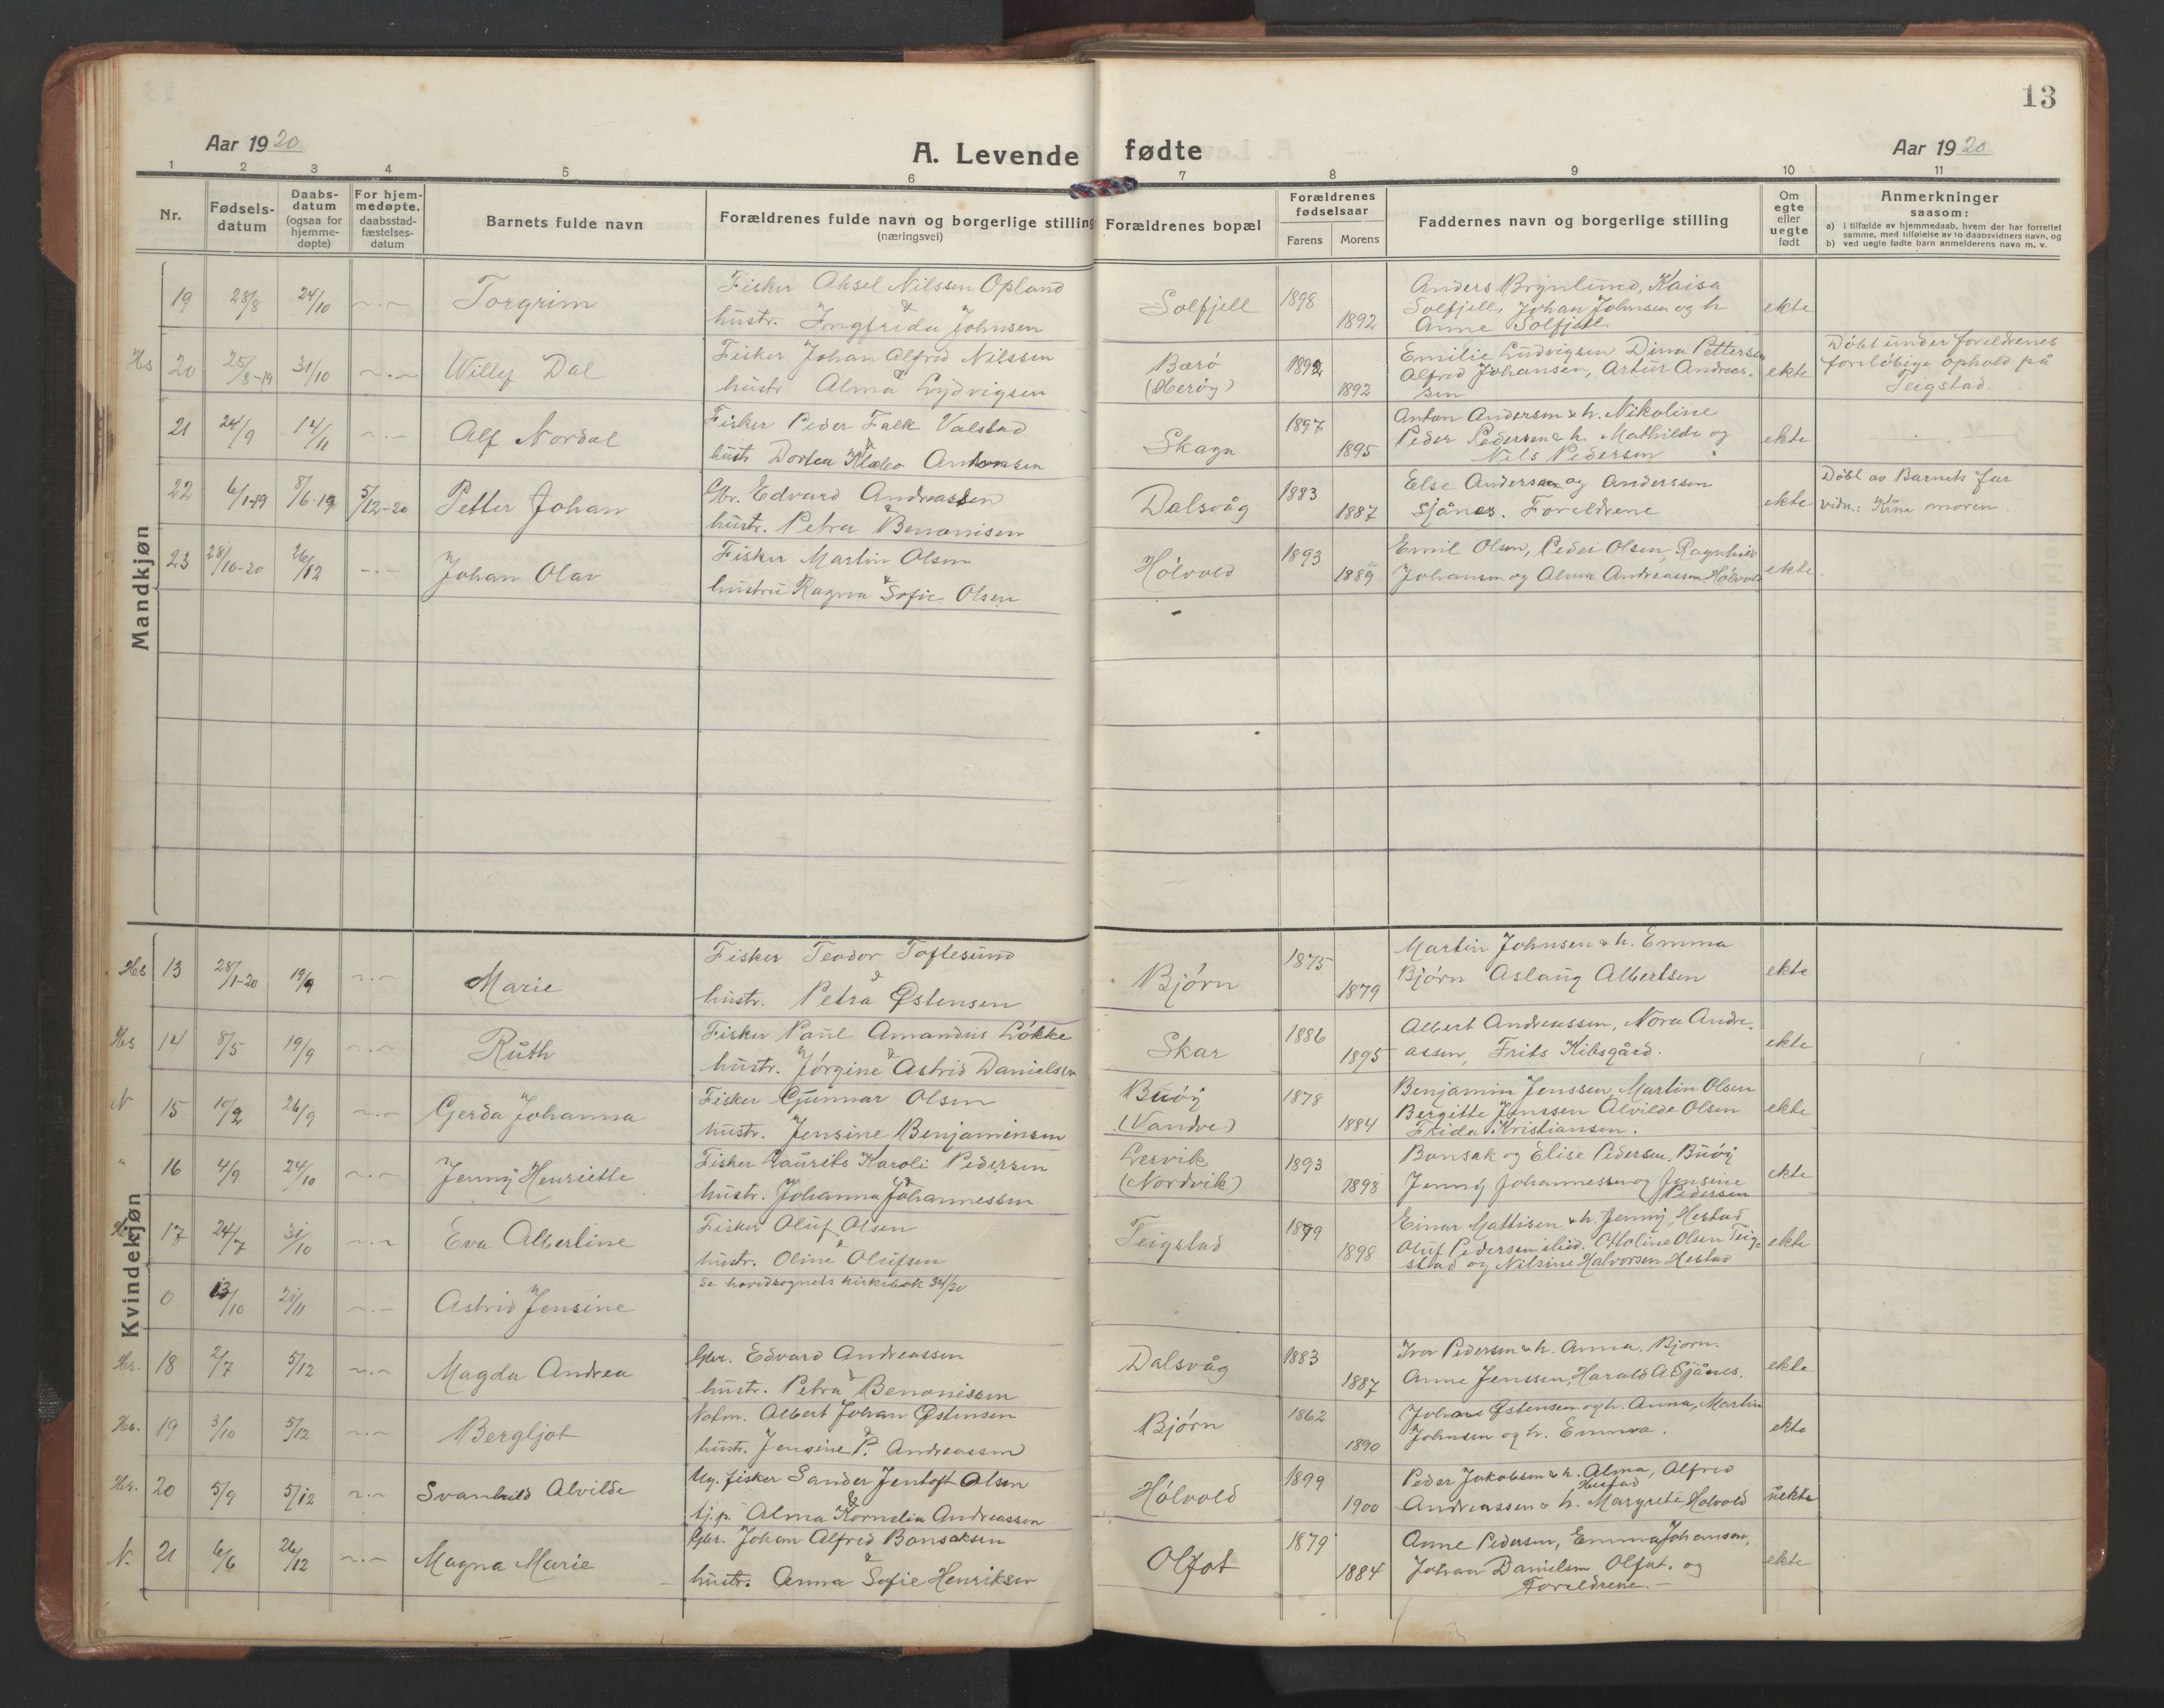 13
Aar 1920
A. Levende fødte
Aar 1920
1 2 3 4 5 6 7 8 9 10 11
Nr.
Fødselsdatum
Daabsdatum (ogsaa for hjemmedøpte)
For hjemmedøpte, daabsstadfæstelsesdatum
Barnets fulde navn
Forældrenes fulde navn og borgerlige stilling (næringsvei)
Forældrenes bopæl
Forældrenes fødselsaar
Farens Morens
Faddernes navn og borgerlige stilling
Om egte eller uegte født
Anmerkninger saasom:
a) i tilfælde av hjemmedaab, hvem der har forrettet samme, med tilføielse av to daabsvidners navn, og
b) ved uegte fødte barn anmelderens navn m. v.
Mandkjøn
19 28/8 24/10 -.- Torgrim
Fisker Aksel Nilssen Opland
& hustr. Ingfrida Johnsen
Solfjell 1898 1892
Anders Brynlund, Kaisa
Solfjell, Johan Johnsen og h
Anne Solfjell
ekte
Hs 20 25/8-19 31/10 -.- Willy Dal
Fisker Johan Alfred Nilssen
& hustr Alma Lydvigsen
Bærø
(Herøy)
1892 1892
Emilie Ludvigsen Dina Pettersen
Alfred Johansen, Artur Andreas-
sen
ekte
Døbt under foreldrenes
foreløbige ophold på
Teigstad.
21 24/9 14/11 -.- Alf Nordal
Fisker Peder Falk Valstad
& hustr Dortea Klæbo Antonsen
Skaga 1897 1895
Anton Andersen & h. Nikoline
Peder Pedersen & h. Mathilde og
Nils Pedersen
ekte
22 6/1-19 8/6-19 5/12-20 Petter Johan
Gbr. Edvard Andreassen
& hustr. Petra Benonisen
Dalsvåg 1883 1887
Else Andersen og Anderssen
Sjånes. Foreldrene
ekte
Døbt av Barnets far
vidn.: Kina moren
23 28/10-20 26/12 -.- Johan Olav
Fisker Martin Olsen
& hustru Ragna Sofie Olsen
Hølvold 1893 1889
Emil Olsen, Peder Olsen, Ragnhild
Johansen og Alma Andreassen Hølvold
ekte
Kvindekjøn
Hs 13 28/1-20 19/9 -.- Marie
Fisker Teodor Toftesund
& hustr. Petra Østensen
Bjørn 1875 1879
Martin Johnsen & h. Emma
Bjørn Aslaug Albertsen
ekte
Hs 14 8/5 19/9 -.- Ruth
Fisker Paul Amandus Løkke
& hustr. Jørgine Astrid Danielsen
Skar 1886 1895
Albert Andreassen, Nora Andre-
assen, Frits Kibsgård.
ekte
N 15 10/2 26/9 -.- Gerda Johanna
Fisker Gunnar Olsen
hustr. Jensine Benjaminsen
Buøy
(Vandve)
1878 1884
Benjamin Jenssen, Martin Olsen
Bergitte Jenssen Alvilde Olsen
Frida Kristiansen.
ekte
" 16 4/9 24/10 -.- Jenny Henriette
Fisker Laurits Karoli Pedersen
& hustr. Johanna Johannessen
Lervik
(Nordvik)
1893 1898
Bonsak og Elise Pedersen, Buøy
Jenny Johannessen og Jensine
Pedersen
ekte
Hs 17 24/7 31/10 -.- Eva Albertine
Fisker Oluf Olsen
& hustr. Oline Olufsen
Teigstad 1899 1898
Einar Mattisen & h. Jenny, Hestad
Oluf Pedersen ibid. Ottoline Olsen Teig-
stad og Nilsine Halvorsen Hestad
ekte
0 13/10 21/11 -.- Astrid Jensine
Se hovedsognets kirkebok 34/20
Hs. 18 2/7 5/12 -.- Magda Andrea
Gbr. Edvard Andreassen
& hustr. Petra Benonissen
Dalsvåg 1883 1887
Iver Pedersen & h. Anna, Bjørn.
Anne Jenssen, Harald A Sjånes.
ekte
Hs. 19 3/10 5/12 -.- Bergljot
Notm. Albert Johan Østensen
& hustr. Jensine P. Andreassen
Bjørn 1862 1890
Johan Østensen og h. Anna, Martin
Johnsen og h. Emma.
ekte
Hs. 20 5/9 5/12 -.- Svanhild Alvilde
Ug. fisker Sander Jentoft Olsen
& tj.p. Alma Kornelia Andreassen
Hølvold 1899 1900
Peder Jakobsen & h. Alma, Alfred
Hestad
Andreassen & h. Margrete, Hølvold
uekte
N. 21 6/6 26/12 -.- Magna Marie
Gbr. Johan Alfred Bonsaksen
& hustr. Anna Sofie Henriksen
Olfot 1879 1884
Anne Pedersen, Emma Johansen,
Johan Danielsen Olfot. og
Foreldrene.-
ekte